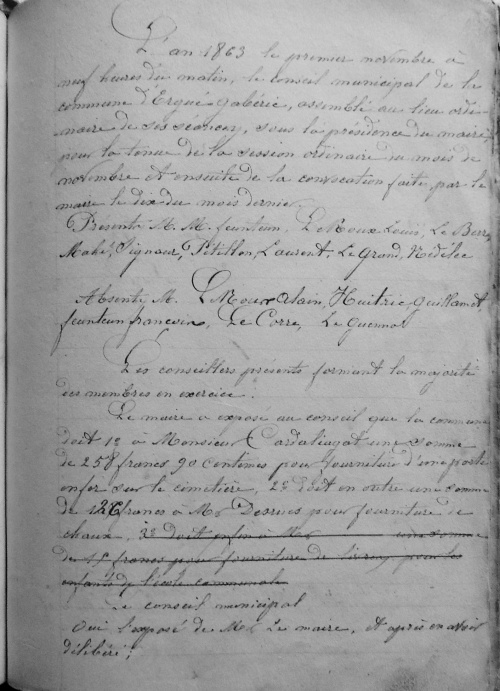 L'an 1863 le premier novembre à
neuf heures du matin, le conseil municipal de la
commune d'Ergué-gabéric, assemblé au lieu ordi
naire de ses séances, sous la présidence du maire
pour la tenue de la session ordinaire du mois de
novembre et ensuite de la convocation faite, par le
maire le dix du mois dernie.
Présents M. M. feunteun, Le Roux Louis, Le Berre,
Mahé, Signour, Pétillon, Laurent, Le Grand, Nédélec
Absents M. Le Roux Alain, Huitric, Guillamet,
feunteun françois, Le Corre, Le Guennou
Les conseillers présents formant la majorité
des membres en exercice.
Le maire a exposé au conseil que la commune
doit 1o à Monsieur Cardaliaguet une somme
de 258 francs 90 centimes pour fourniture d'une porte
en fer sur le cimetière, 2o doit en outre une somme
de 126 francs à Mr Desrues pour fourniture de
chaux, 3o doit enfin à Mr une somme
de 15 francs pour fourniture de livres pour les
enfants de l'école communale
Le conseil municipal
Ouï l'exposé de Mr Le maire, et après en avoir
délibéré;